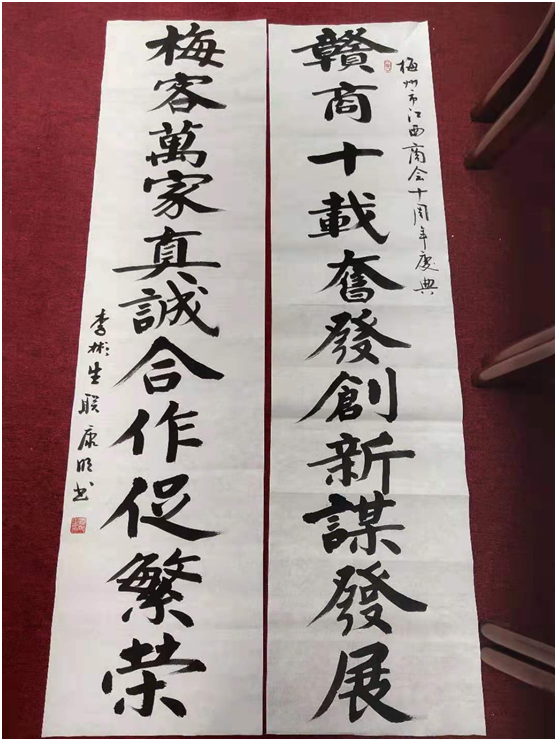 梅州市江西商会十周年慶典
贛商十載奮發創新謀發展
梅客萬家真誠合作促繁荣
李彬生联康明书